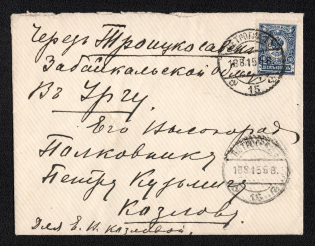 Чрезъ Троицкосавскъ
Забайкальской
Въ Ургу.
Его Высокород
Полковник
Петру Кузьмич
Козлову
Для Е. В. Козловой.
18.3.15.6 8.
15
18.3.15.6 8.
15